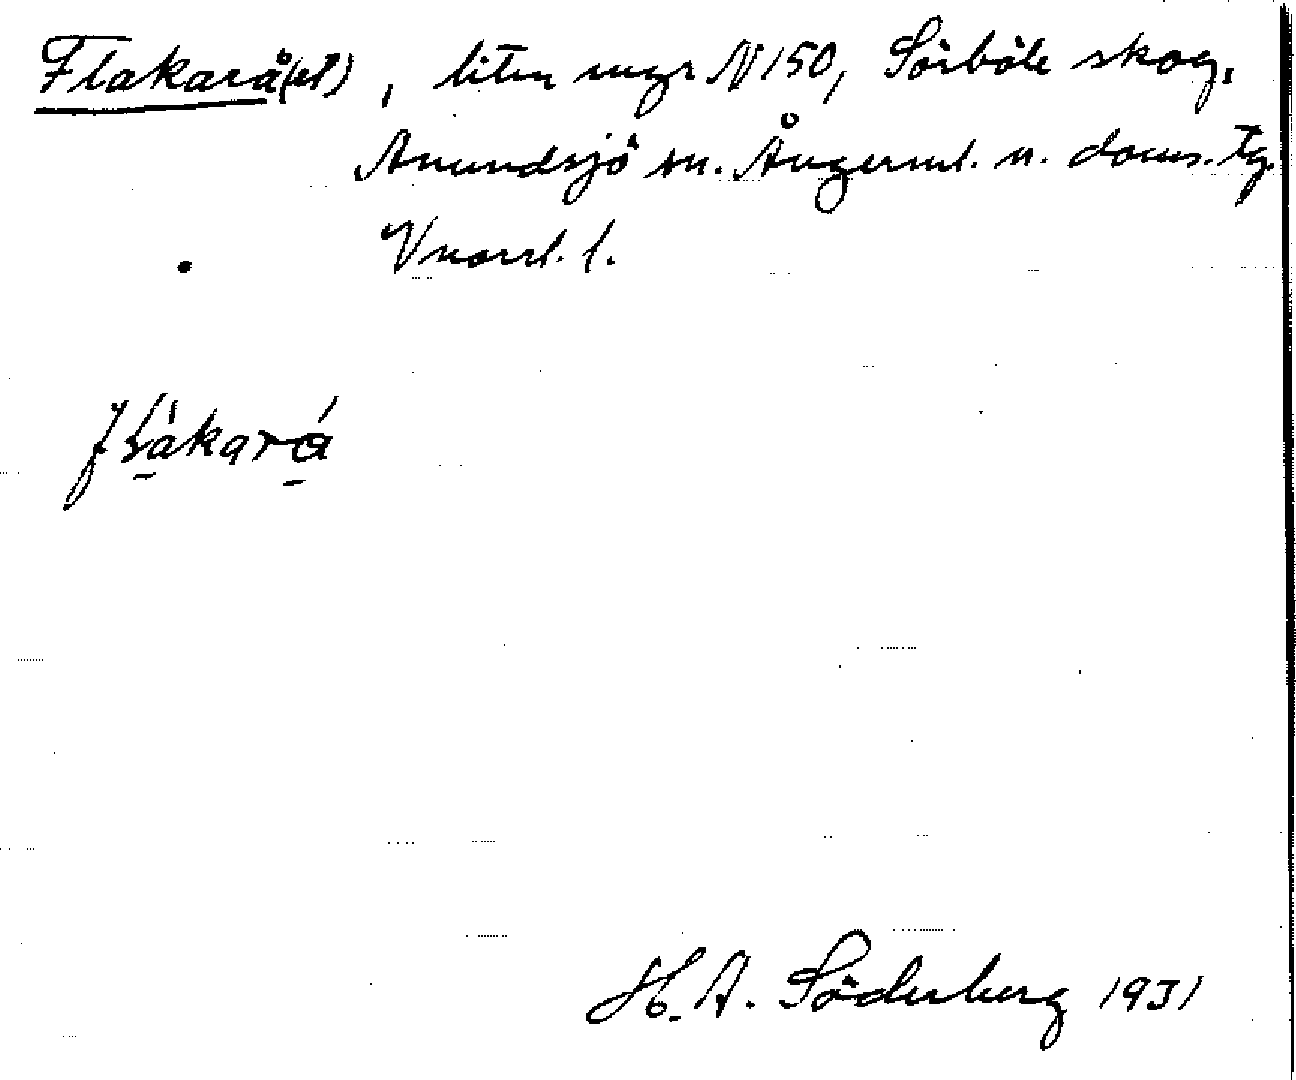 Flakarå(et), liten myr N 150, Sörböle skog.
Anundsjö sn. Ångerml. n. doms. Tg.
Vnorrl. l.
flákará
H. A. Söderberg 1931